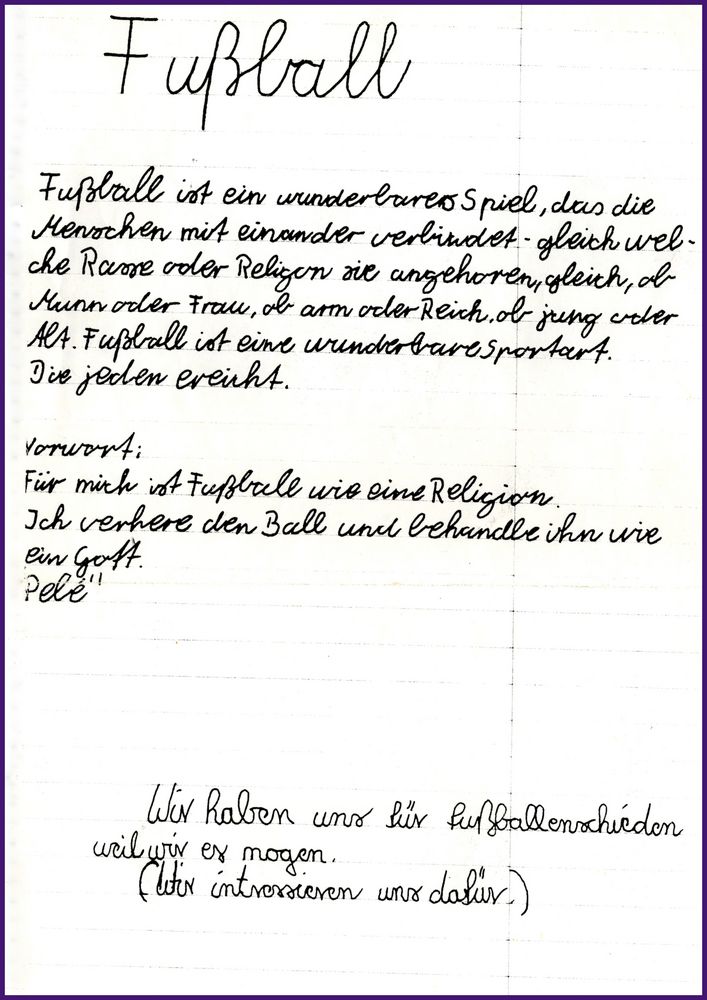 Fußball
Fußball ist ein wunderbares Spiel, das die
Menschen mit einander verbindet - gleich wel-
che Rasse oder Religon sie angehoren, gleich, ob
Mann oder Frau, ob arm oder Reich, ob jung oder
Alt. Fußball ist eine wunderbare Sportart.
Die jeden ereicht.
Vorwort:
Für mich ist Fußball wie eine Religion.
Ich verhere den Ball und behandle ihn wie
ein Gott.
Pelé"
Wir haben uns für Fußball enschieden
weil wir es mogen.
(Wir intressieren uns dafür.)